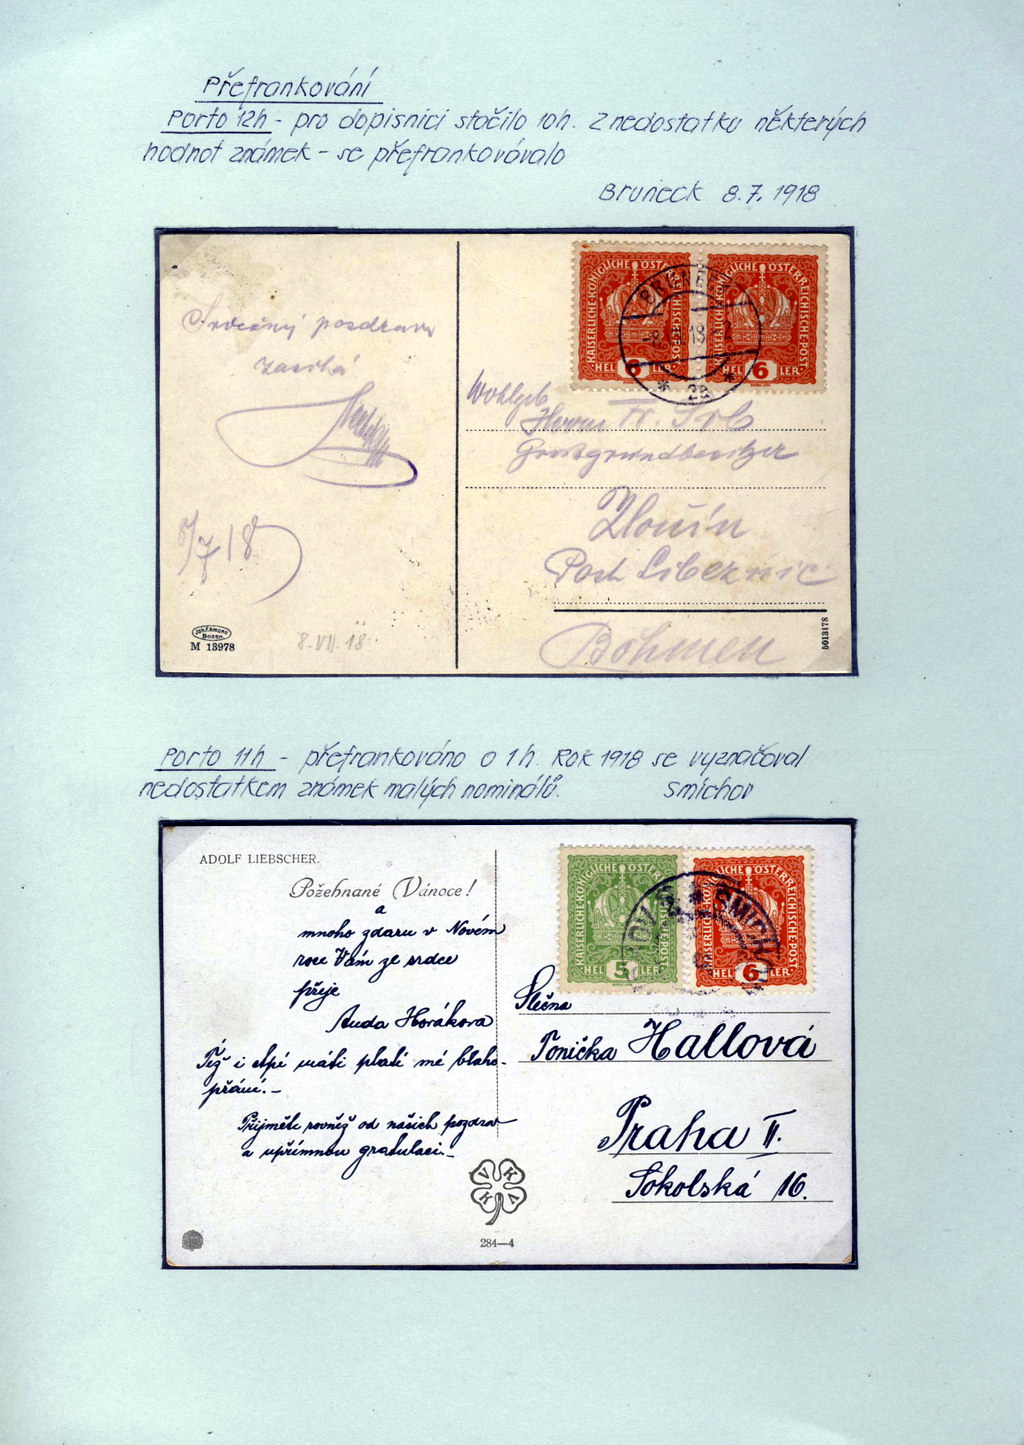 Přefrankování
Porto 12h - pro dopisnici stačilo 10h. Z nedostatku některých
hodnot známek - se přefrankovávalo
Bruneck 8.7. 1918
Srdečný pozdrav
zasílá
8/7 18
8. VII. 18.
Joh. F. Amonn
Bozen
M 13978
KAISERLICHE KÖNIGLICHE ÖSTERREICHISCHE POST
6 HELLER
KAISERLICHE KÖNIGLICHE ÖSTERREICHISCHE POST
6 HELLER
BRUNECK
18
2a
Wohlgeb
Herrn
Grossgrundbesitzer
Zlonín
Post Libeznic
Böhmen
5013178
Porto 11h - přefrankováno o 1h. Rok 1918 se vyznačoval
nedostatkem známek malých nominálů. Smíchov
ADOLF LIEBSCHER.
Požehnané Vánoce!
a
mnoho zdaru v Novém
roce Vám ze srdce
přeje
Anda Horákova
Též i ctpé máti platí mé blaho-
přání.-
Přijměte rovněž od našich pozdrav
a upřímnou gratulaci.-
KAISERLICHE KÖNIGLICHE ÖSTERREICHISCHE POST
5 HELLER
KAISERLICHE KÖNIGLICHE ÖSTERREICHISCHE POST
6 HELLER
SMICHOV
Slečna
Tonička Hallová
Praha II.
Sokolská 16.
V K K V
284—4